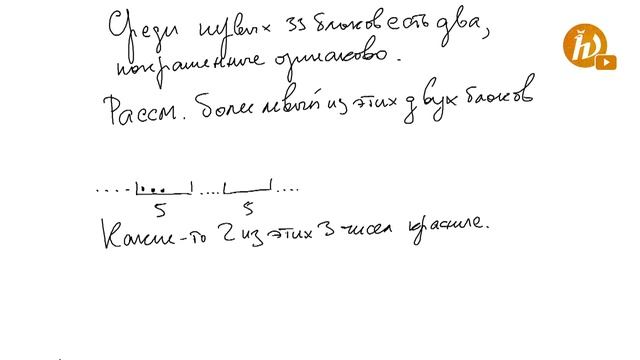 Среди первых 33 блоков есть два,
покрашенные одинаково.
Рассм. более левый из этих двух блоков
5 5
Какие-то 2 из этих 3 чисел красные.